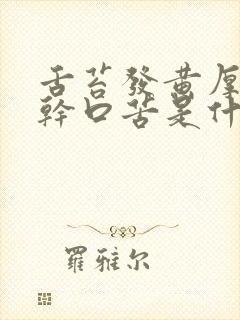 舌苔發黃厚
幹口苦是什
羅雅尔